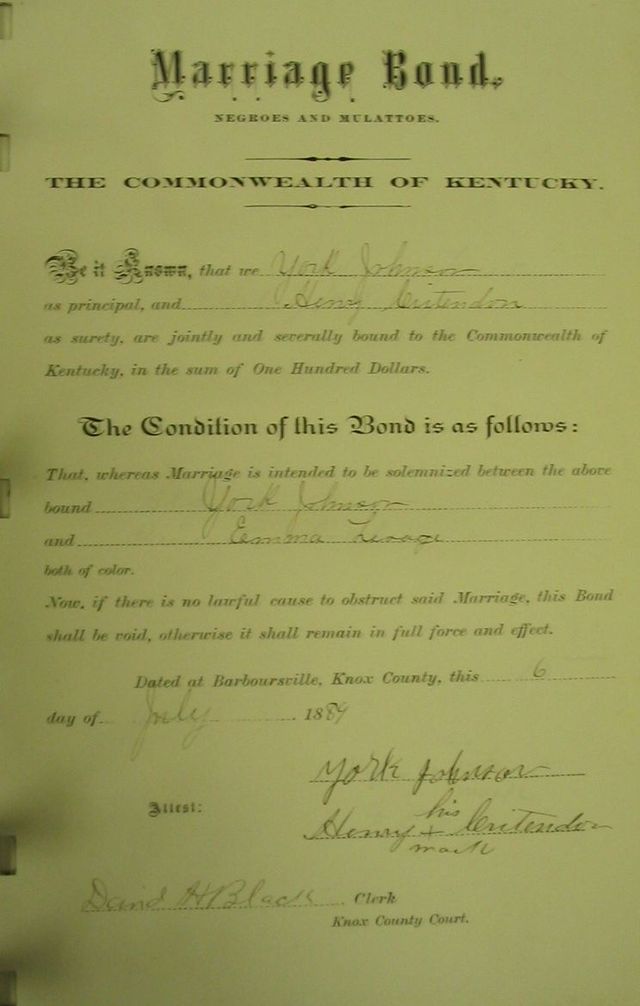 Marriage Bond.
NEGROES AND MULATTOES.
THE COMMONWEALTH OF KENTUCKY.
Be it Known, that we York Johnson
as principal, and Henry Critendon
as surety, are jointly and severally bound to the Commonwealth of
Kentucky, in the sum of One Hundred Dollars.
The Condition of this Bond is as follows:
That, whereas Marriage is intended to be solemnized between the above
bound York Johnson
and Emma
both of color.
Now, if there is no lawful cause to obstruct said Marriage, this Bond
shall be void, otherwise it shall remain in full force and effect.
Dated at Barboursville, Knox County, this 6
day of July 1889
York Johnson
Attest:
his
Henry + Critendon
mark
David H Black Clerk
Knox County Court.